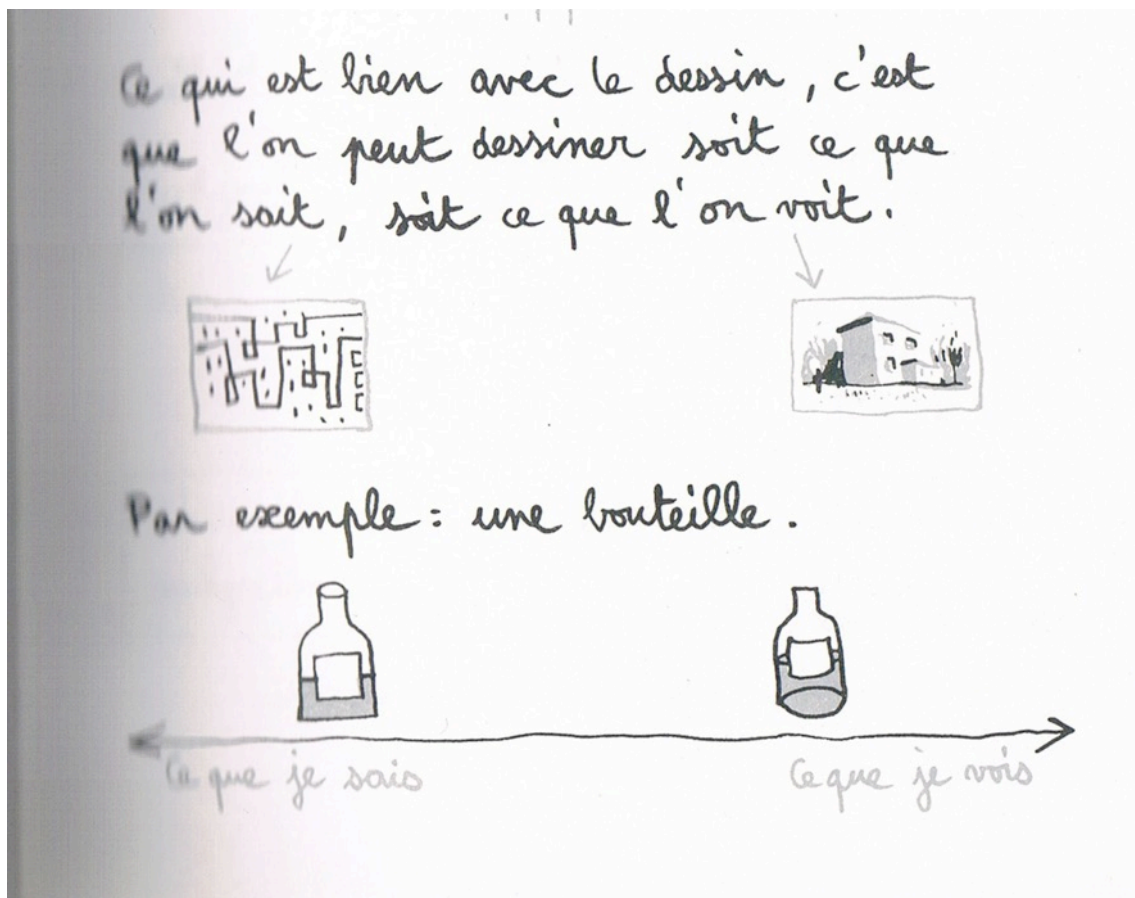 Ce qui est bien avec le dessin, c'est
que l'on peut dessiner soit ce que
l'on sait, soit ce que l'on voit.
Par exemple : une bouteille.
Ce que je sais
Ce que je vois